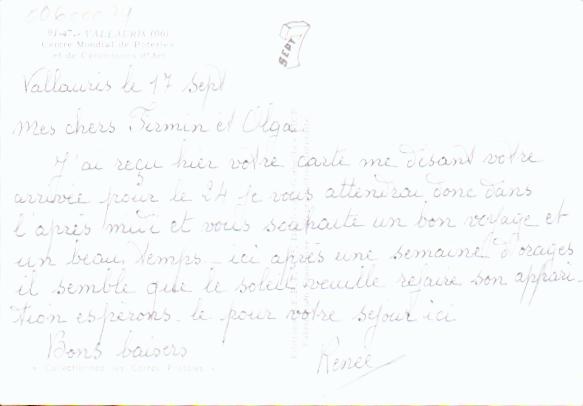 0600079
91-47. - VALLAURIS (06)
Centre Mondial de Poteries
et de Céramiques d'Art
SEPT
Vallauris le 17 sept
Mes chers Firmin et Olga
J'ai reçu hier votre carte me disant votre
arrivée pour le 24 je vous attendrai donc dans
l'après midi et vous souhaite un bon voyage et
un beau temps - ici après une semaine d'orages
il semble que le soleil veuille refaire son appari-
tion espérons-le pour votre sejour ici
Bons baisers
Renée
« Collectionnez les Cartes Postales »